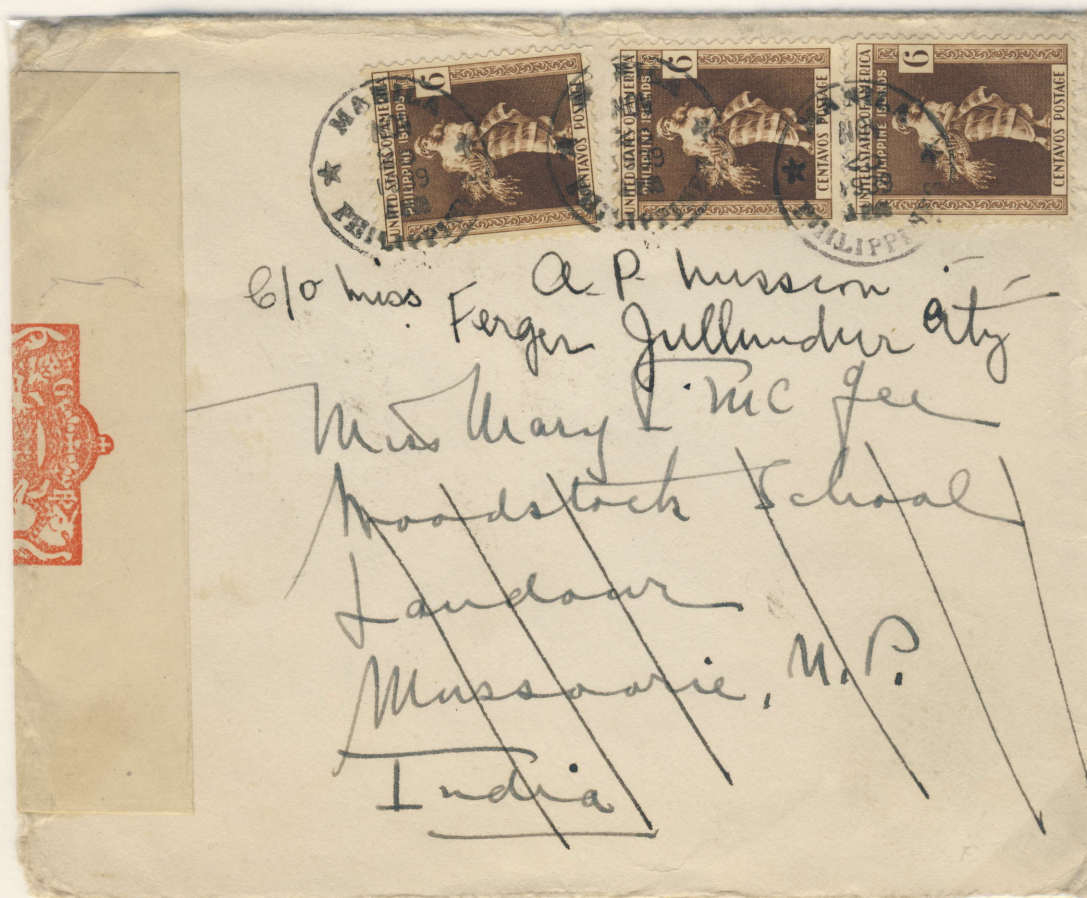 UNITED STATES OF AMERICA
PHILIPPINE ISLANDS
6
CENTAVOS POSTAGE
UNITED STATES OF AMERICA
PHILIPPINE ISLANDS
6
CENTAVOS POSTAGE
UNITED STATES OF AMERICA
PHILIPPINE ISLANDS
6
CENTAVOS POSTAGE
MANILA
PHILIPPINES
PHILIPPINES
c/o Miss Ferger
A. P. Mission
Jullundur City
Miss Mary T. McGee
Woodstock School
Landour
Mussoorie, U.P.
India
G R